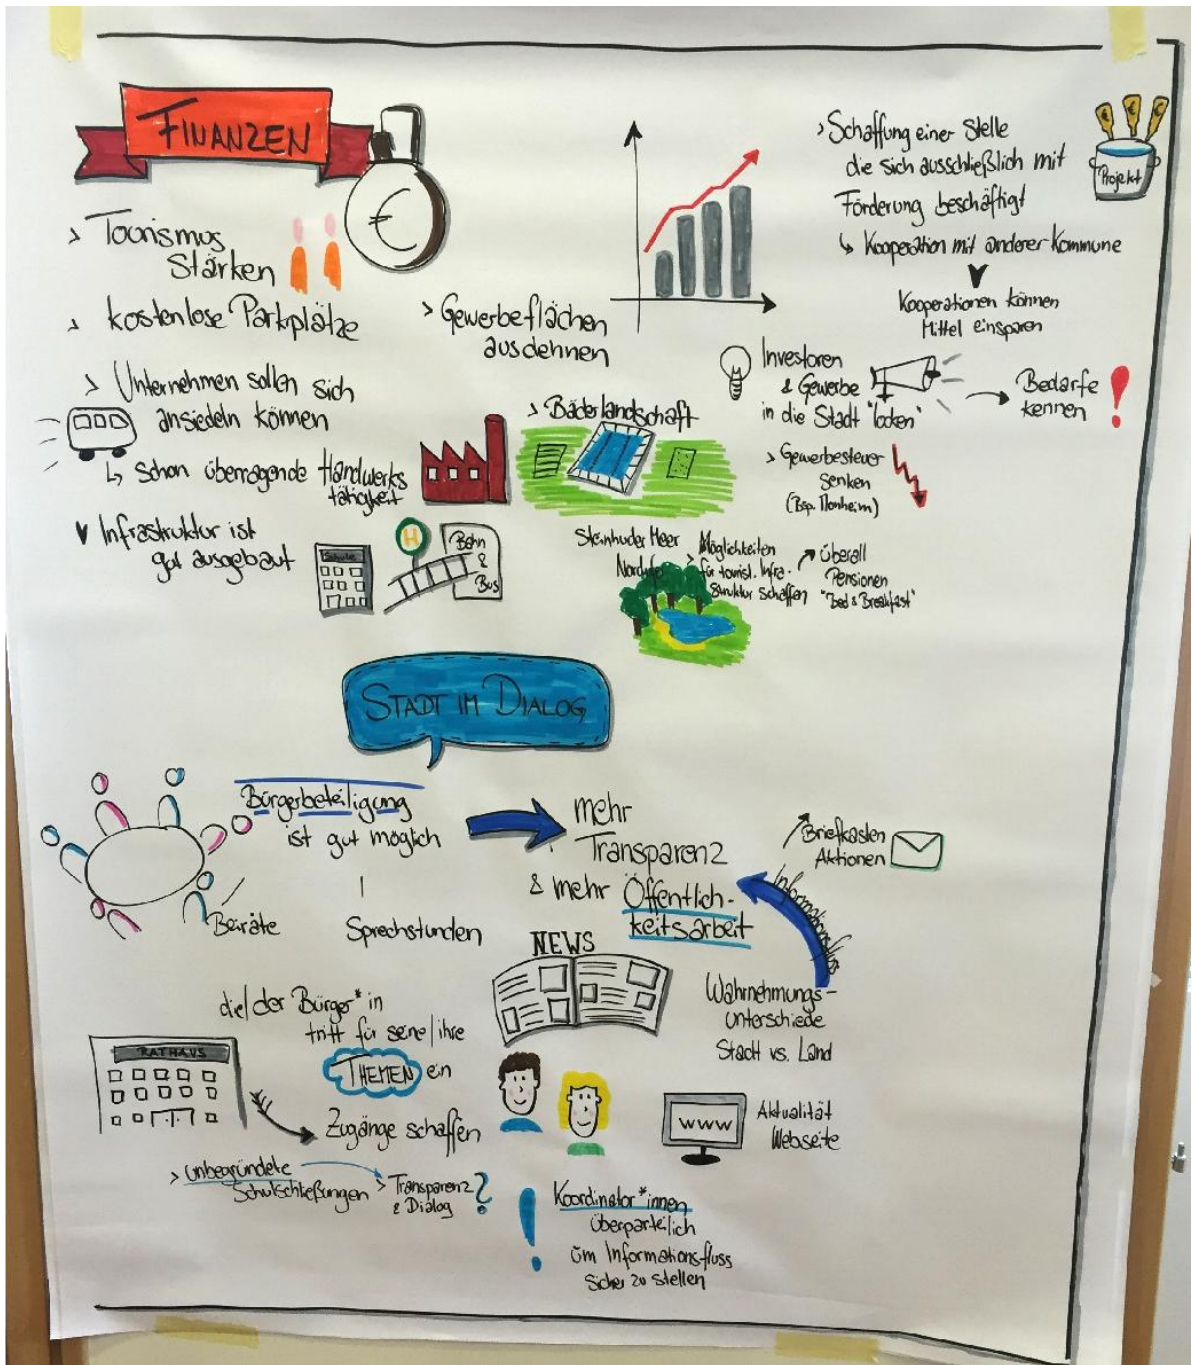 FINANZEN
€
> Tourismus
Stärken
> kostenlose Parkplätze
> Unternehmen sollen sich
ansiedeln können
↳ schon überragende Handwerks
tätigkeit
v Infrastruktur ist
gut ausgebaut
Schule
H
Bahn
&
Bus
> Gewerbeflächen
ausdehnen
> Bäderlandschaft
Steinhuder Meer
Nordufer
> Möglichkeiten
für tourist. Infra-
struktur schaffen
überall
Pensionen
"Bed & Breakfast"
> Schaffung einer Stelle
die sich ausschließlich mit
Förderung beschäftigt
↳ Kooperation mit anderer Kommune
Kooperationen können
Mittel einsparen
€ € €
Projekt
Investoren
& Gewerbe
in die Stadt "locken"
→ Bedarfe
kennen !
> Gewerbesteuer
senken
(Bsp. Monheim)
STADT IM DIALOG
Bürgerbeteiligung
ist gut möglich
Beiräte
Sprechstunden
mehr
Transparenz
& mehr Öffentlich-
keitsarbeit
Briefkasten
Aktionen
Informationsfluss
NEWS
Wahrnehmungs-
unterschiede
Stadt vs. Land
die/der Bürger*in
tritt für seine/ihre
THEMEN ein
RATHAUS
Zugänge schaffen
> unbegründete
Schulschließungen
> Transparenz
& Dialog ?
www
Aktualität
Webseite
! Koordinator*innen
überparteilich
um Informationsfluss
sicher zu stellen